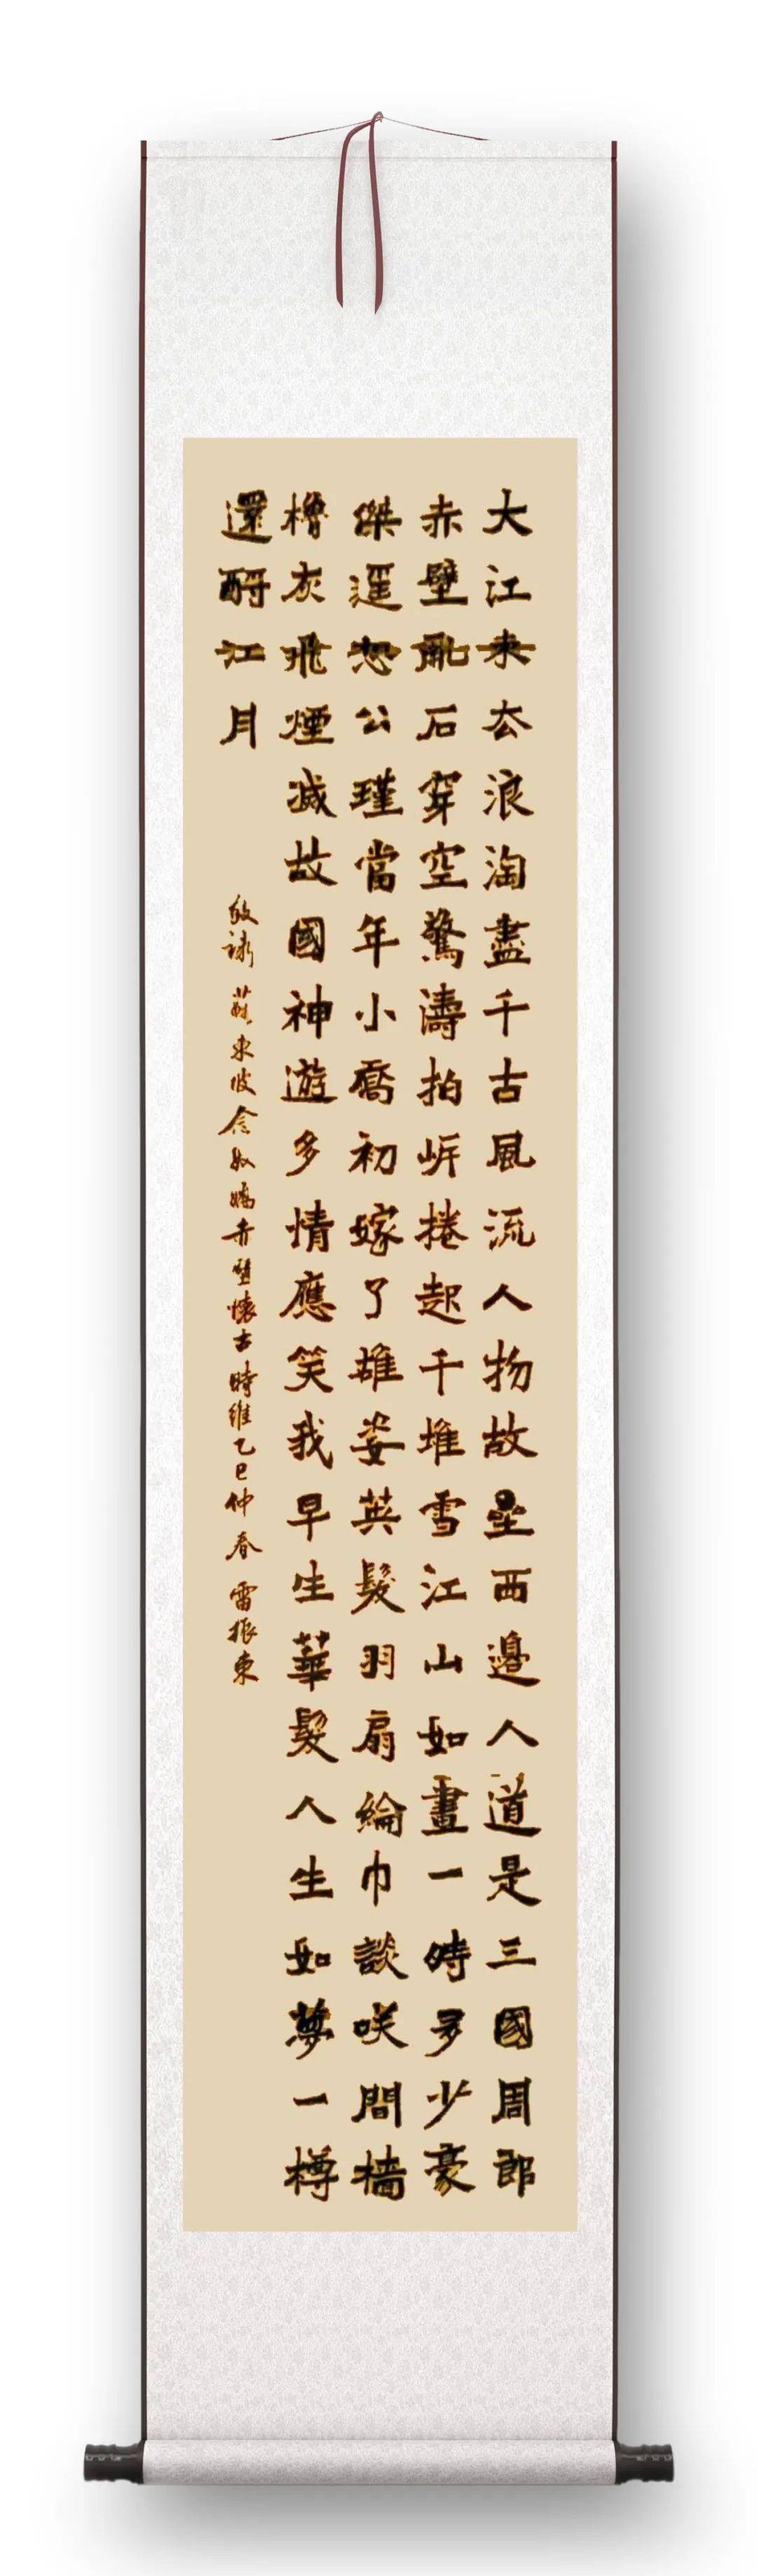 大江東去浪淘盡千古風流人物故壘西邊人道是三國周郎
赤壁亂石穿空驚濤拍岸捲起千堆雪江山如畫一時多少豪
傑遥想公瑾當年小喬初嫁了雄姿英髮羽扇綸巾談咲間檣
櫓灰飛煙滅故國神遊多情應笑我早生華髮人生如夢一樽
還酹江月
敬錄蘇東坡念奴嬌赤壁懷古時維乙巳仲春雷振東